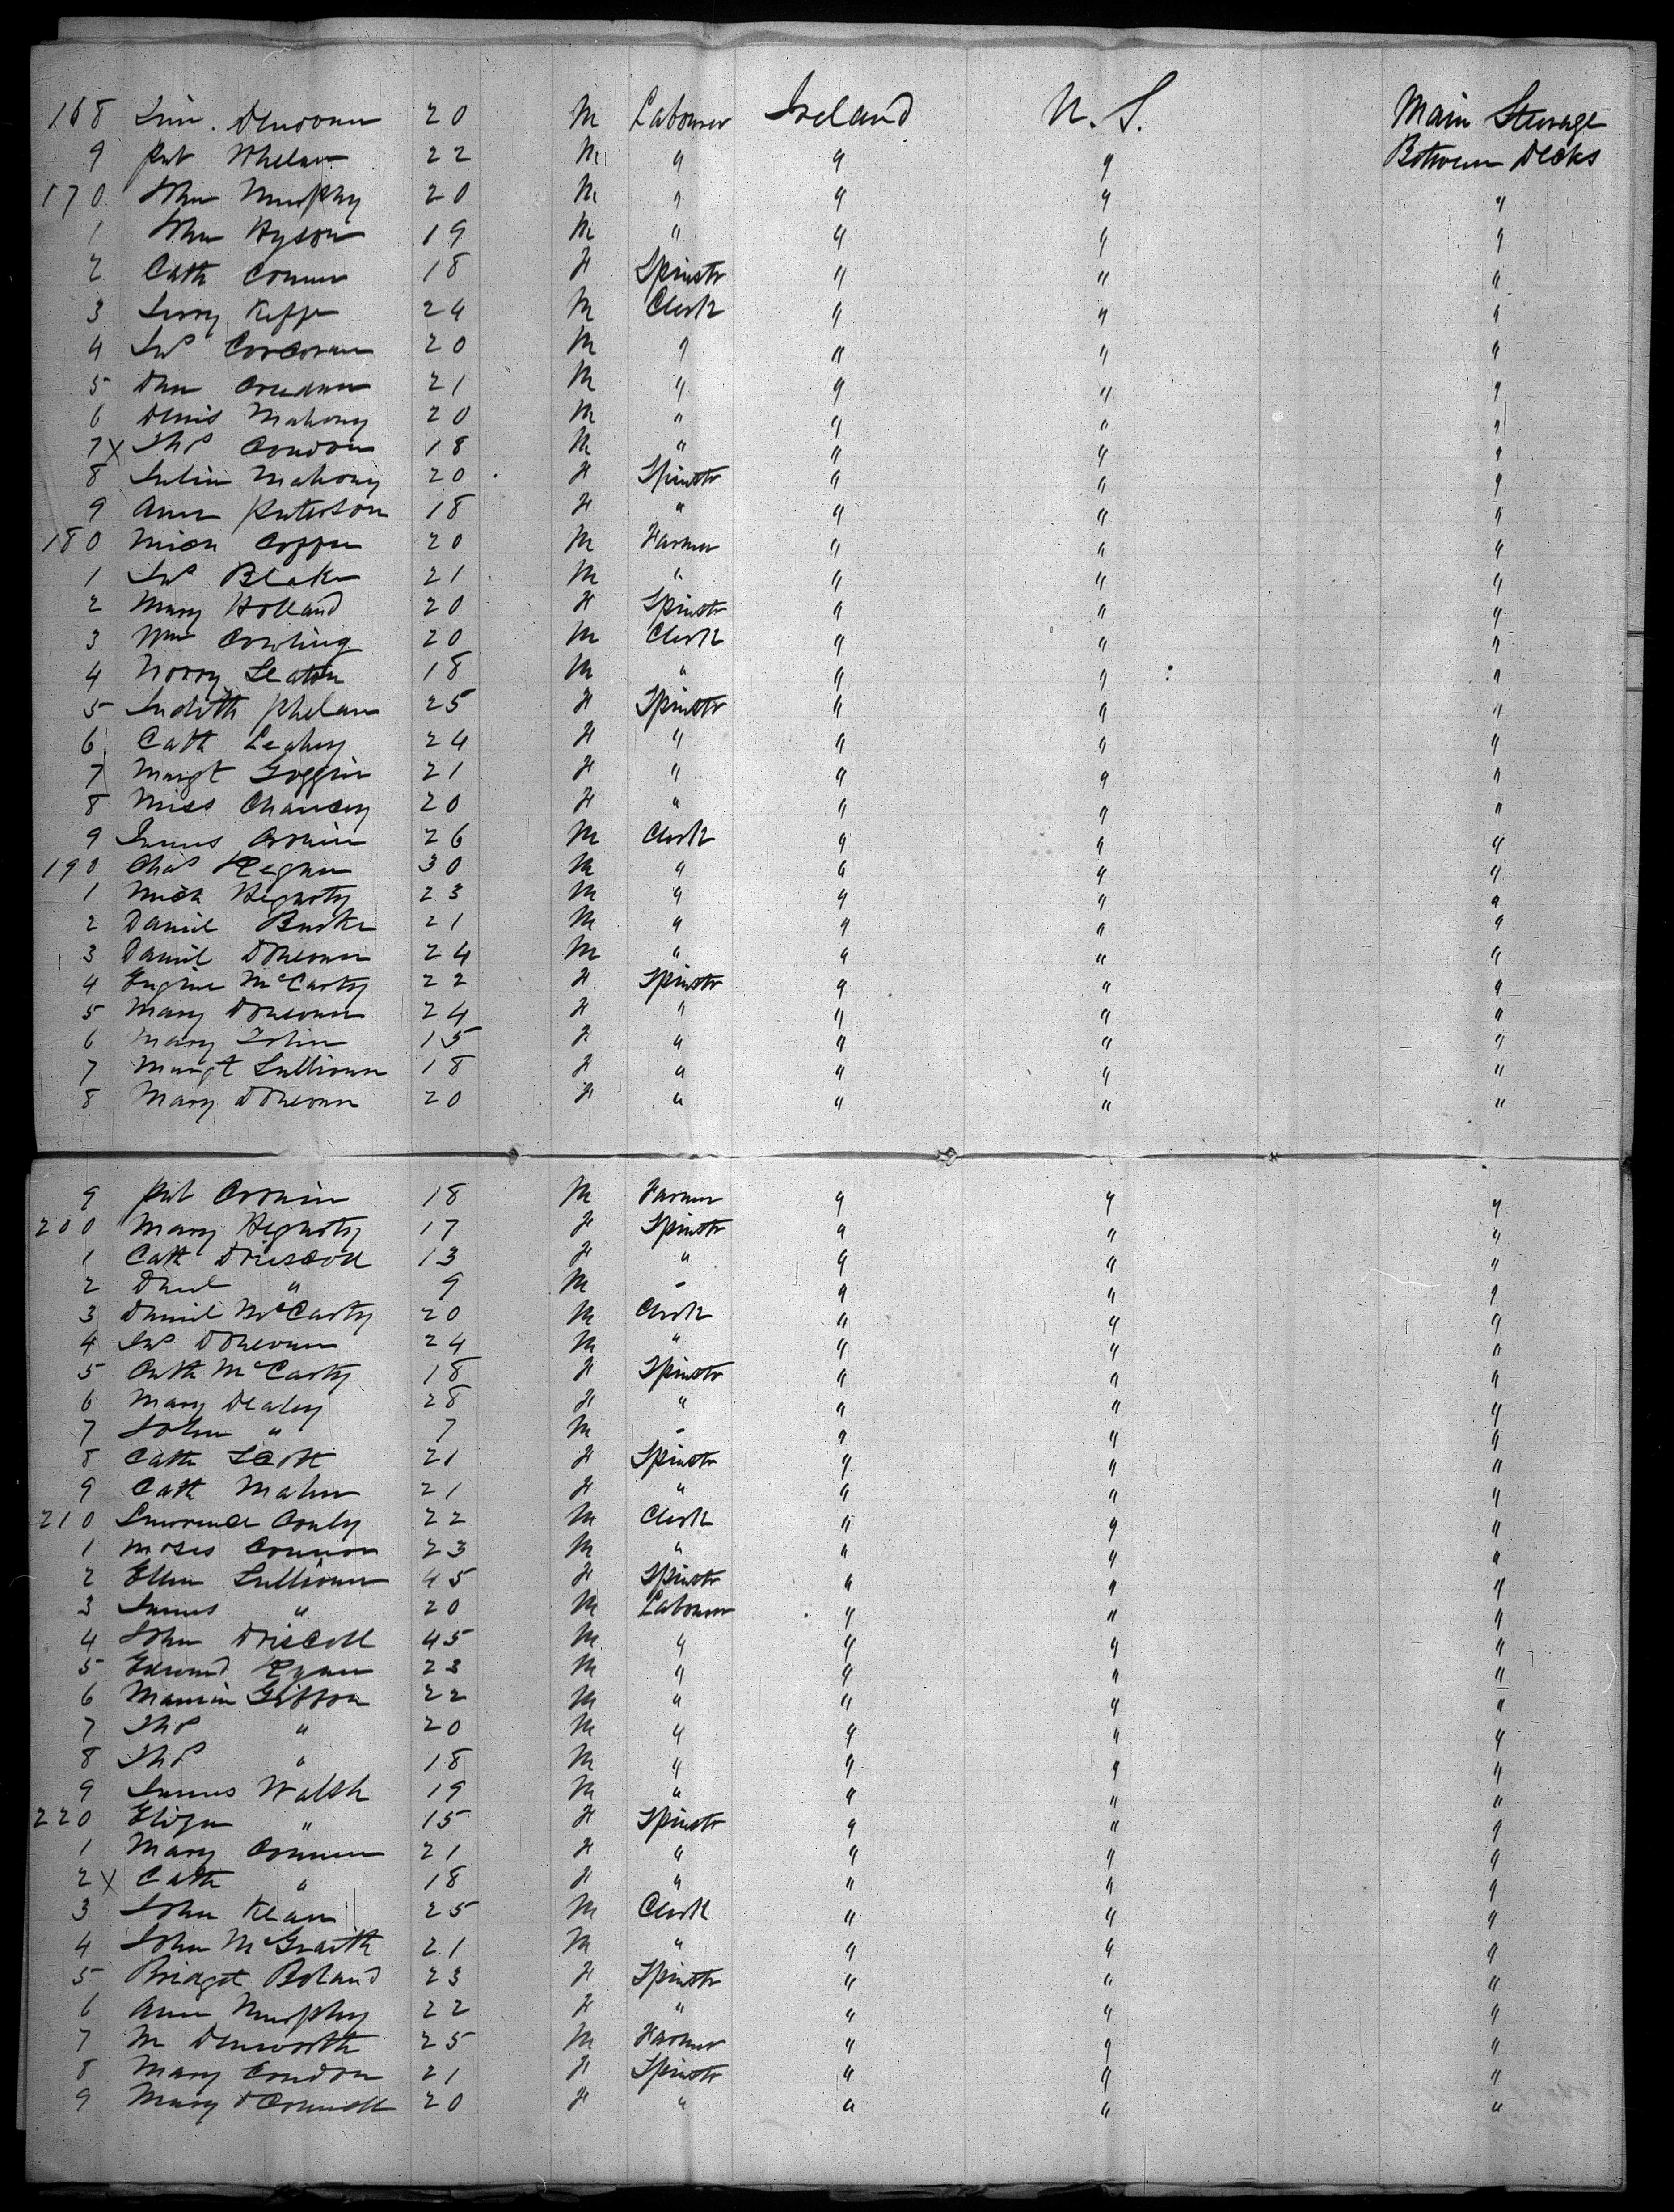 168 Denovan 20 M Labourer Ireland U. S. Main Steerage
9 Pat Whelan 22 M " " " Between Decks
170 John Murphy 20 M " " " "
1 John Hyson 19 M " " " "
2 Cath Connor 18 F Spinstr " " "
3 24 M Clerk " " "
4 Jas Corcoran 20 M " " " "
5 Danl 21 M " " " "
6 Denis Mahony 20 M " " " "
7 X Thos Condon 18 M " " " "
8 Julia Mahony 20 F Spinstr " " "
9 Ann Paterson 18 F " " " "
180 Mich 20 M Farmer " " "
1 Jas Blake 21 M " " " "
2 Mary Holland 20 F Spinstr " " "
3 Wm Cowling 20 M Clerk " " "
4 18 M " " " "
5 Judith Phelan 25 F Spinstr " " "
6 Cath Leahy 24 F " " " "
7 Margt Goggin 21 F " " " "
8 Miss Chancey 20 F " " " "
9 James Cronin 26 M Clerk " " "
190 Chas Regan 30 M " " " "
1 Mich Hegarty 23 M " " " "
2 Daniel Burke 21 M " " " "
3 Daniel Donovan 24 M " " " "
4 Eugene McCarty 22 F Spinstr " " "
5 Mary Donovan 24 F " " " "
6 Mary Tobin 15 F " " " "
7 Margt Sullivan 18 F " " " "
8 Mary Donovan 20 F " " " "
9 Pat Cronin 18 M Farmer " " "
200 Mary Hegarty 17 F Spinstr " " "
1 Cath Driscoll 13 F " " " "
2 Danl " 9 M - " " "
3 Daniel McCarty 20 M Clerk " " "
4 Jas Donovan 24 M " " " "
5 Cath McCarty 18 F Spinstr " " "
6 Mary Dealey 28 F " " " "
7 John " 7 M - " " "
8 Cath Scott 21 F Spinstr " " "
9 Cath Maher 21 F " " " "
210 Lawrence Conly 22 M Clerk " " "
1 Moses Connor 23 M " " " "
2 Ellen Sullivan 45 F Spinstr " " "
3 James " 20 M Labourer " " "
4 John Driscoll 45 M " " " "
5 Edward Ryan 23 M " " " "
6 Gibbon 22 M " " " "
7 Thos " 20 M " " " "
8 Thos " 18 M " " " "
9 James Walsh 19 M " " " "
220 Eliza " 15 F Spinstr " " "
1 Mary Connor 21 F " " " "
2 X Cath " 18 F " " " "
3 John Kean 25 M Clerk " " "
4 John McGraith 21 M " " " "
5 Bridget Boland 23 F Spinstr " " "
6 Ann Murphy 22 F " " " "
7 M Denworth 25 M Farmer " " "
8 Mary Condon 21 F Spinstr " " "
9 Mary O'Connell 20 F " " " "